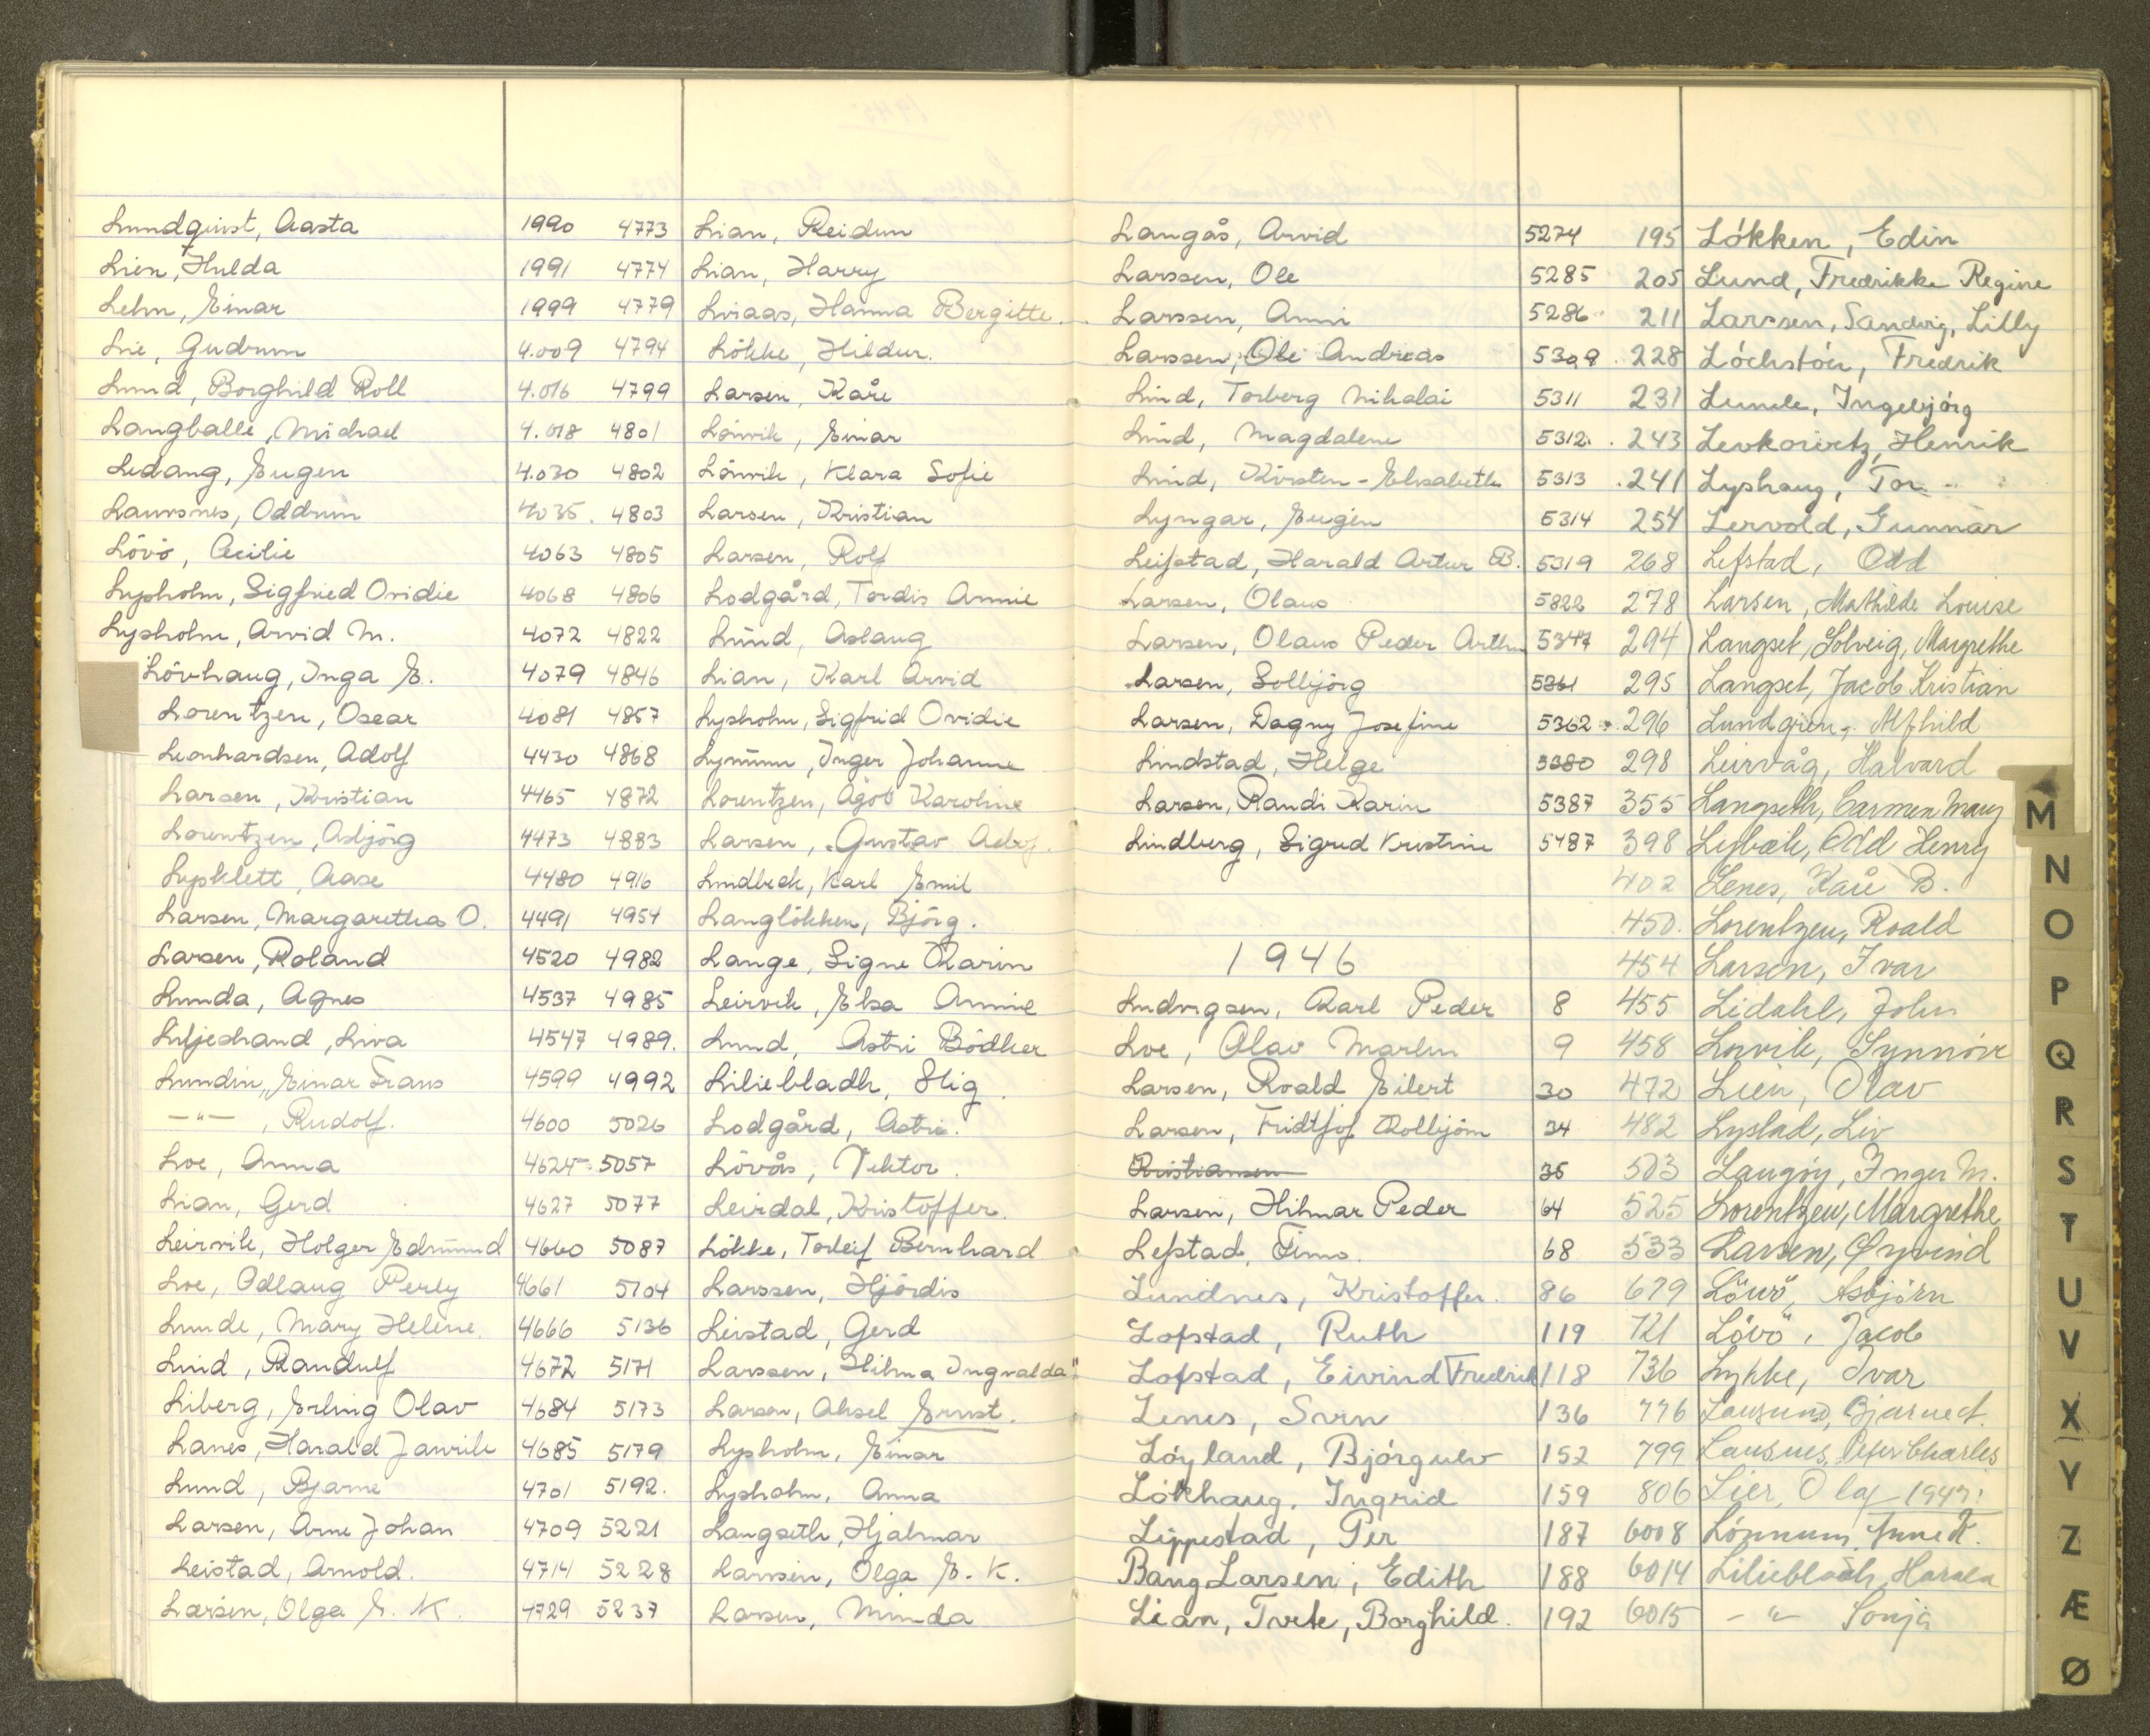 Lundqvist, Aasta 1990 4773 Lian, Reidun
Lien, Hulda 1991 4774 Lian, Harry
Lehn, Einar 1999 4779 Liaas, Hanna Bergitte
Lie, Gudrun 4.009 4794 Lökke, Hildur.
Lund, Borghild Roll 4.016 4799 Larsen, Kåre
Langballe, Michael 4.018 4801 Lönvik, Einar
Ledang, Eugen 4.030 4802 Lönvik, Klara Sofie
Laursnes, Oddrun 4035. 4803 Larsen, Kristian
Lövö, Cecilie 4063 4805 Larsen, Rolf
Lysholm, Sigfried Ovidie 4068 4806 Lodgård, Tordis Annie
Lysholm, Arvid M. 4072 4822 Lund, Aslaug
Lövhaug, Inga E. 4079 4846 Lian, Karl Arvid
Lorentzen, Oscar 4081 4857 Lysholm, Sigfrid Ovidie
Leonhardsen, Adolf 4430 4868 Lynum, Inger Johanne
Larsen, Kristian 4465 4872 Lorentzen, Ågot Karoline
Lorentzen, Asbjörg 4473 4883 Larsen, Gustav
Lysklett, Aase 4480 4916 Lindbeck, Karl Emil
Larsen, Margaretha O. 4491 4954 Langlökken, Björg.
Larsen, Roland 4520 4982 Lange, Signe Karin
Lunda, Agnes 4537 4985 Leirvik, Elsa Annie
Liljestrand, Liva 4547 4989. Lund, Astri Bödker
Lundin, Einar Frans 4599 4992 Liliebladh, Stig
—"—, Rudolf. 4600 5026 Lodgård, Astri.
Loe, Anna 4624 5057 Lövås, Viktor.
Lian, Gerd 4627 5077 Leirdal, Kristoffer.
Leirvik, Holger Edmund 4660 5087 Lökke, Torleif Bernhard
Loe, Odlaug Perly 4661 5104 Larssen, Hjördis
Lunde, Mary Helene. 4666 5136 Leistad, Gerd
Lind, Randulf 4672 5171 Larssen, Hilma Ingvalda
Liberg, Erling Olav 4684 5173 Larsen, Aksel Ernst.
Lanes, Harald Janrik 4685 5179 Lysholm, Einar
Lund, Bjarne 4701 5192. Lysholm, Anna
Larsen, Arne Johan 4709 5221 Langseth, Hjalmar
Leistad, Arnold. 4714 5228 Larsen, Olga E. K.
Larsen, Olga E. K. 4729 5237 Larsen, Minda
Langås, Arvid 5274 195 Lökken, Edin
Larssen, Ole 5285 205 Lund, Fredrikke Regine
Larssen, Anni 5286 211 Larssen, Sandvig, Lilly
Larssen, Ole Andreas 5309. 228 Löchstöer, Fredrik
Lind, Torberg Nikolai 5311 231 Lunde, Ingebjörg
Lind, Magdalene 5312. 243 Levkowitz, Henrik
Lind, Kirsten-Elisabeth 5313 .241 Lyshaug, Tor
Lyngar, Eugen 5314 254 Lervold, Gunnar
Leifstad, Harald Artur B. 5319 268 Lefstad, Odd
Larsen, Olaus 5322 278 Larsen, Mathilde Louise
Larsen, Olaus Peder Arthur 5347 294 Langset, Solveig, Margrethe
Larsen, Solbjörg 5361 295 Langset, Jacob Kristian
Larsen, Dagny Josefine 5362 296 Lundgren, Alfhild
Lindstad, Helge 5380 298 Leirvåg, Halvard
Larsen, Randi Karin 5387 355 Langseth, Carmen Mary
Lindberg, Sigrid Kristine 5487 398 Leibæk, Odd Henry
402 Lenes, Kåre B.
450. Lorentzen, Roald
1946 454 Larsen, Ivar
Ludvigsen, Karl Peder 8 455 Lidahl, John
Loe, Olav Martin 9 458 Lorvik, Synnöve
Larsen, Roald Eilert 30 472 Lien, Olav
Larsen, Fridtjof Kolbjörn 34 482 Lystad, Liv
Kristiansen 35 503 Langöy, Inger M.
Larsen, Hilmar Peder 64 525 Lorentzen, Margrethe
Lefstad, Timo. 68 533 Larsen, Øyvind
Lundnes, Kristoffer. 86 679 Lövö, Asbjörn
Lofstad, Ruth 119 721 Lövö, Jacob
Lofstad, Eivind Fredrik 118 736 Lykke, Ivar
Lenes, Svein 136 776 Lausund, Bjarne
Löyland, Björgulv 152 799 Lausnes, Peter Charles
Lökhaug, Ingrid 159 806 Lier, Olaf 1947!
Lippestad, Per 187 6008 Lönnum, Anne K.
Bang Larsen, Edith 188 6014 Liliebladh, Harald
Lian, Tvete, Borghild. 192 6015 —"— Sonja
M
N
O
P
Q
R
S
T
U
V
X
Y
Z
Æ
Ø